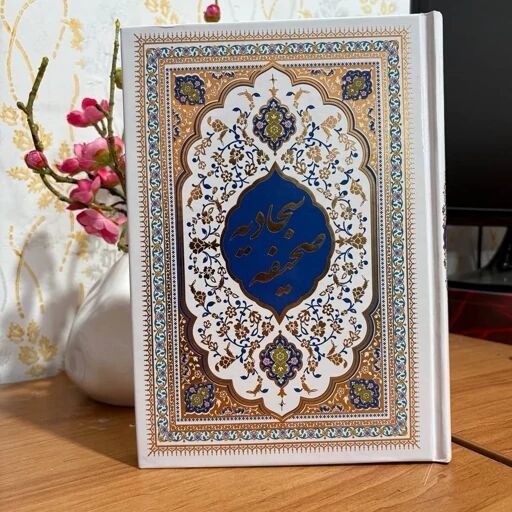 صحیفه
سجادیه